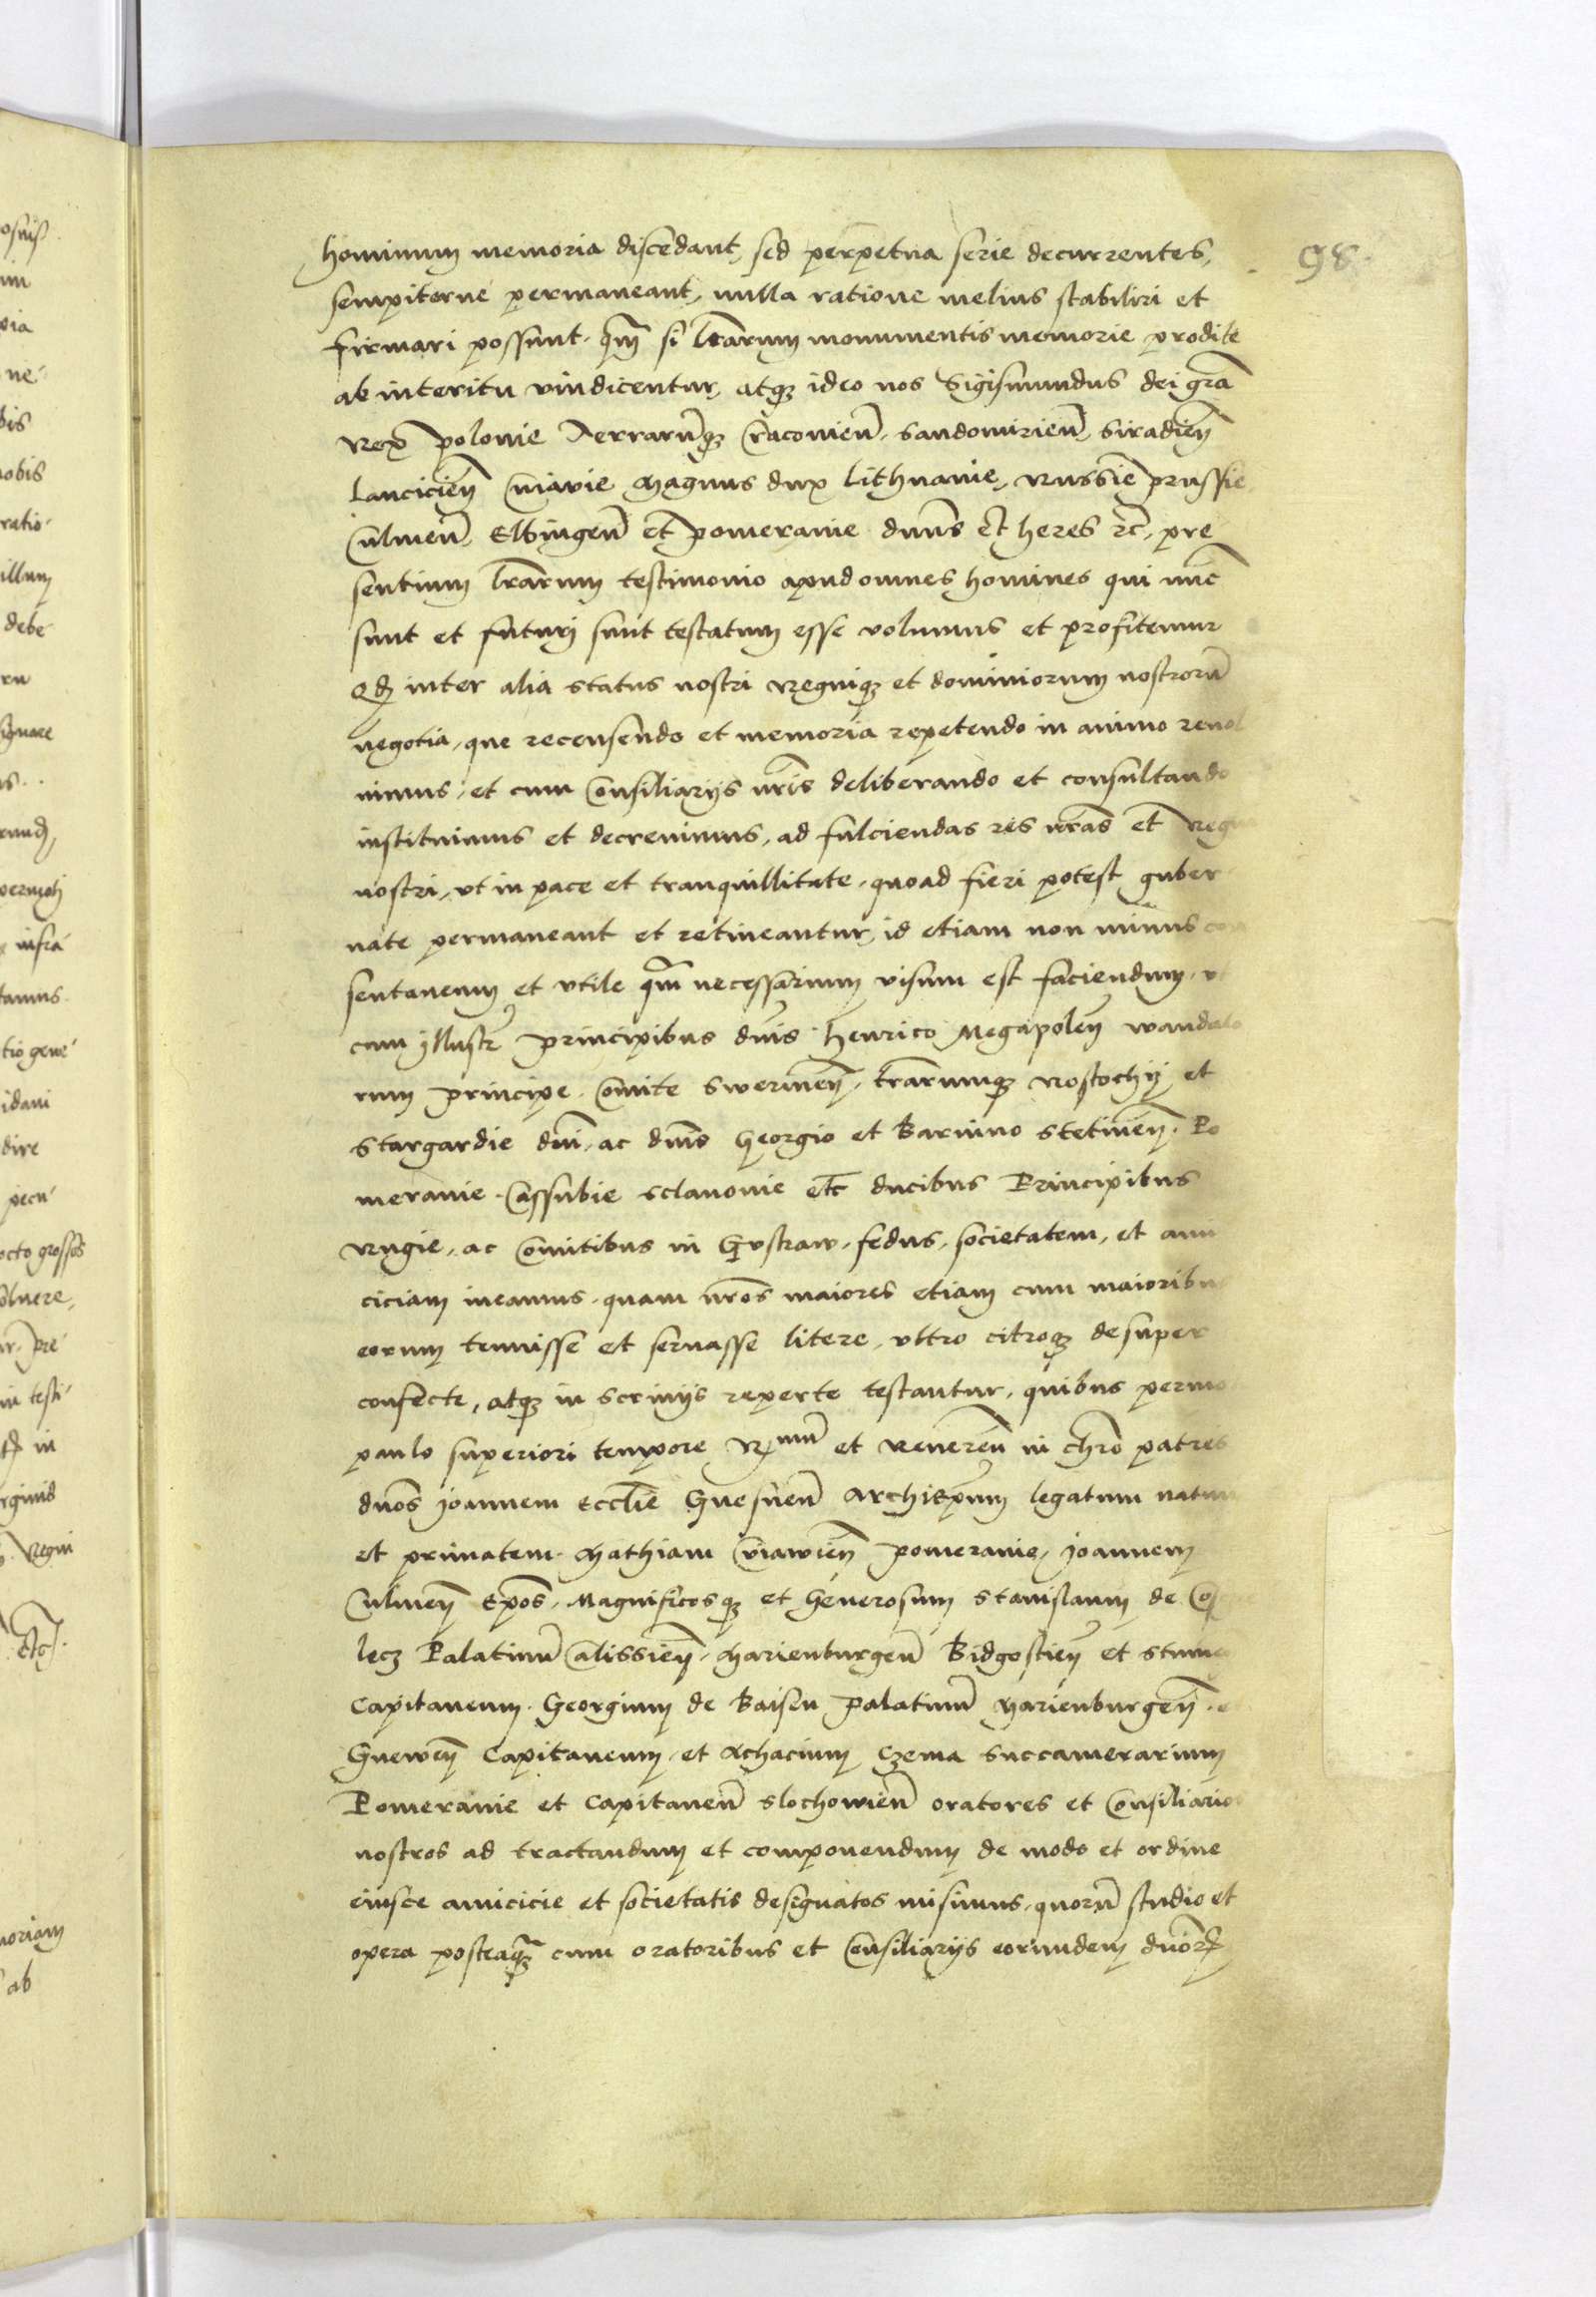 98
hominum memoria discedant, sed perpetua serie decurrentes,
sempiterne permaneant, nulla ratione melius stabiliri et
firmari possunt. qm̄ si lr̄arum monumentis memorie prodite
ab interitu vindicentur, atqȝ ideo nos Sigismundus dei gr̄a
Rex Polonie Terrarūqȝ Cracovień, Sandomirień, Siradień
Lancicień Cuiavie Magnus dux Lithuanie, Russie Prussie
Culmeń, Elbingeń et Pomeranie dnūs et heres ꝛc̄, pre
sentium lr̄arum testimonio apud omnes homines qui nūc
sunt et futuri sunt testatum esse volumus et profitemur
Qd̄ inter alia status nostri Regniqȝ et dominiorum nostrorū
negotia, que recensendo et memoria repetendo in animo revol
vimus, et cum Consiliarijs nr̄is deliberando et consultando
instituimus et decrevimus, ad fulciendas res nr̄as et Regni
nostri, vt in pace et tranquillitate, quoad fieri potest guber
nate permaneant et retineantur, id etiam non minus con
sentaneum et vtile qm̄ necessarium visum est faciendum, vt
cum Illustr̄ principibus dnīs Henrico Megapoleń wandalo
rum principe Comite Swerineń, tr̄arumqȝ Rostochij et
Stargardie dnō, ac dnīs Georgio et Barnimo Stetineń. Po
meranie Cassubie Sclauonie etc̄ ducibus Principibus
Rugie, ac Comitibus in Gvstzaw, fedus, societatem, et ami
ciciam ineamus, quam nr̄os maiores etiam cum maioribus
eorum tenuisse et seruasse litere, vltro citroqȝ desuper
confecte, atqȝ in scrinijs reperte testantur, quibus permoti
paulo superiori tempore R̄mū et Revereń in chr̄o patres
dnōs Joannem Ecclīe Gnesneń Archiep̄um legatum natum
et primatem. Mathiam Cuiawień Pomeranie, Joannem
Culmeń Ep̄os, Magnificosqȝ et Generosum Stanislaum de Cos
lecz Palatinū Calissień, Marienburgeń Bidgostień et
Capitaneum. Georgium de Baisen Palatinū Marienburgeń. et
Gneweń Capitaneum, et Achacium Czema Succamerarium
Pomeranie et Capitaneū Slochowień oratores et Consiliarios
nostros ad tractandum et componendum de modo et ordine
eiusce amicicie et societatis designatos misimus, quorū studio et
opera posteaqȝ cum oratoribus et Consiliarijs eorundem dnōrꝝ